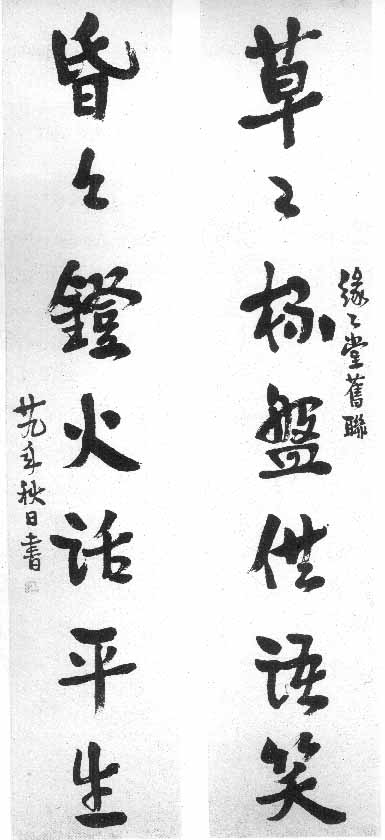 緣々堂舊聯
草々杯盤供語笑
昏々鐙火話平生
廿九年秋日書